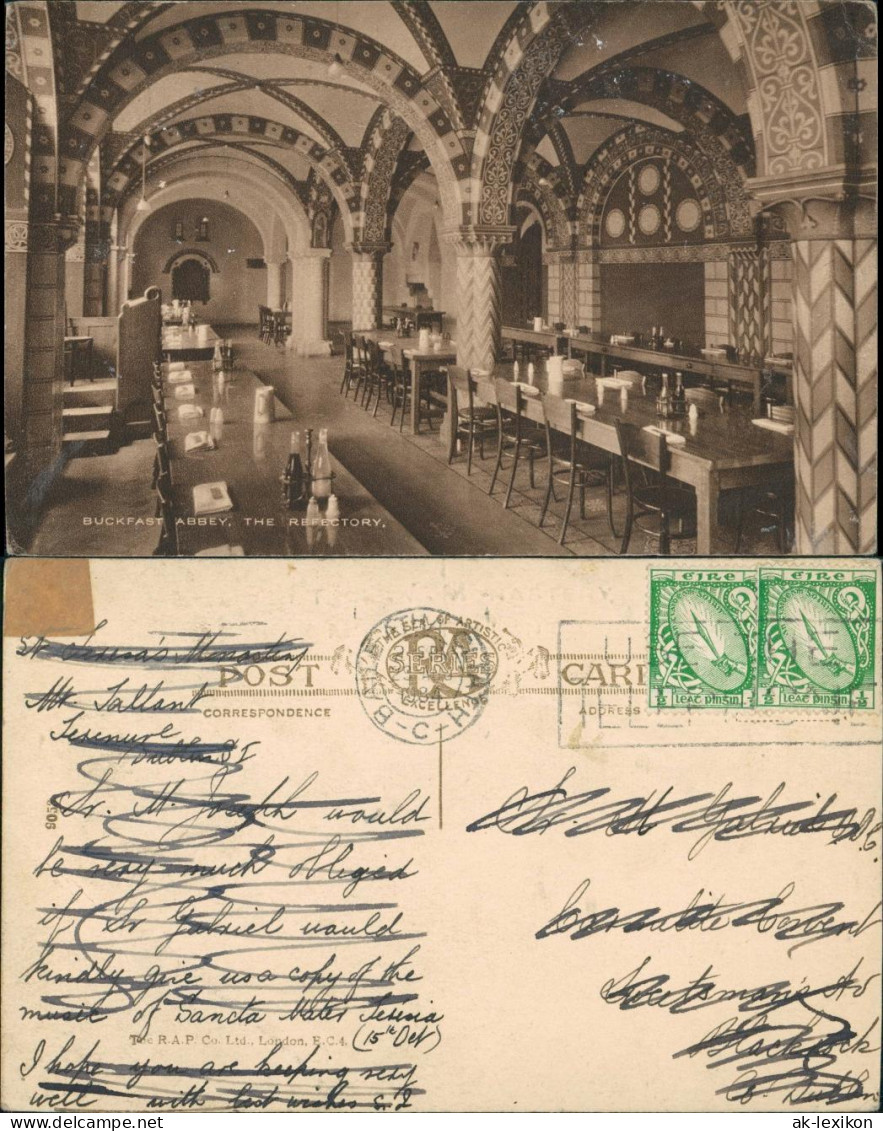 BUCKFAST ABBEY, THE REFECTORY.
St Teresa's Monastery
Mt Tallant
Terenure
Dublin
POST CARD
CORRESPONDENCE
ADDRESS
THE SEAL OF ARTISTIC
SERIES
EXCELLENCE
ÉIRE
ÉIRE
½ LEAT PINGIN ½
½ LEAT PINGIN ½
Sr. M. Joseph would
be very much obliged
if Sr Gabriel would
kindly give us a copy of the
music of Sancta Mater Teresia
(15th Oct)
The R.A.P. Co. Ltd., London, E.C.4.
I hope you are keeping very
well with best wishes
Sr. M Gabriel
Carmelite Convent
Sweetman's Av
Blackrock
Co. Dublin
ak-lexikon